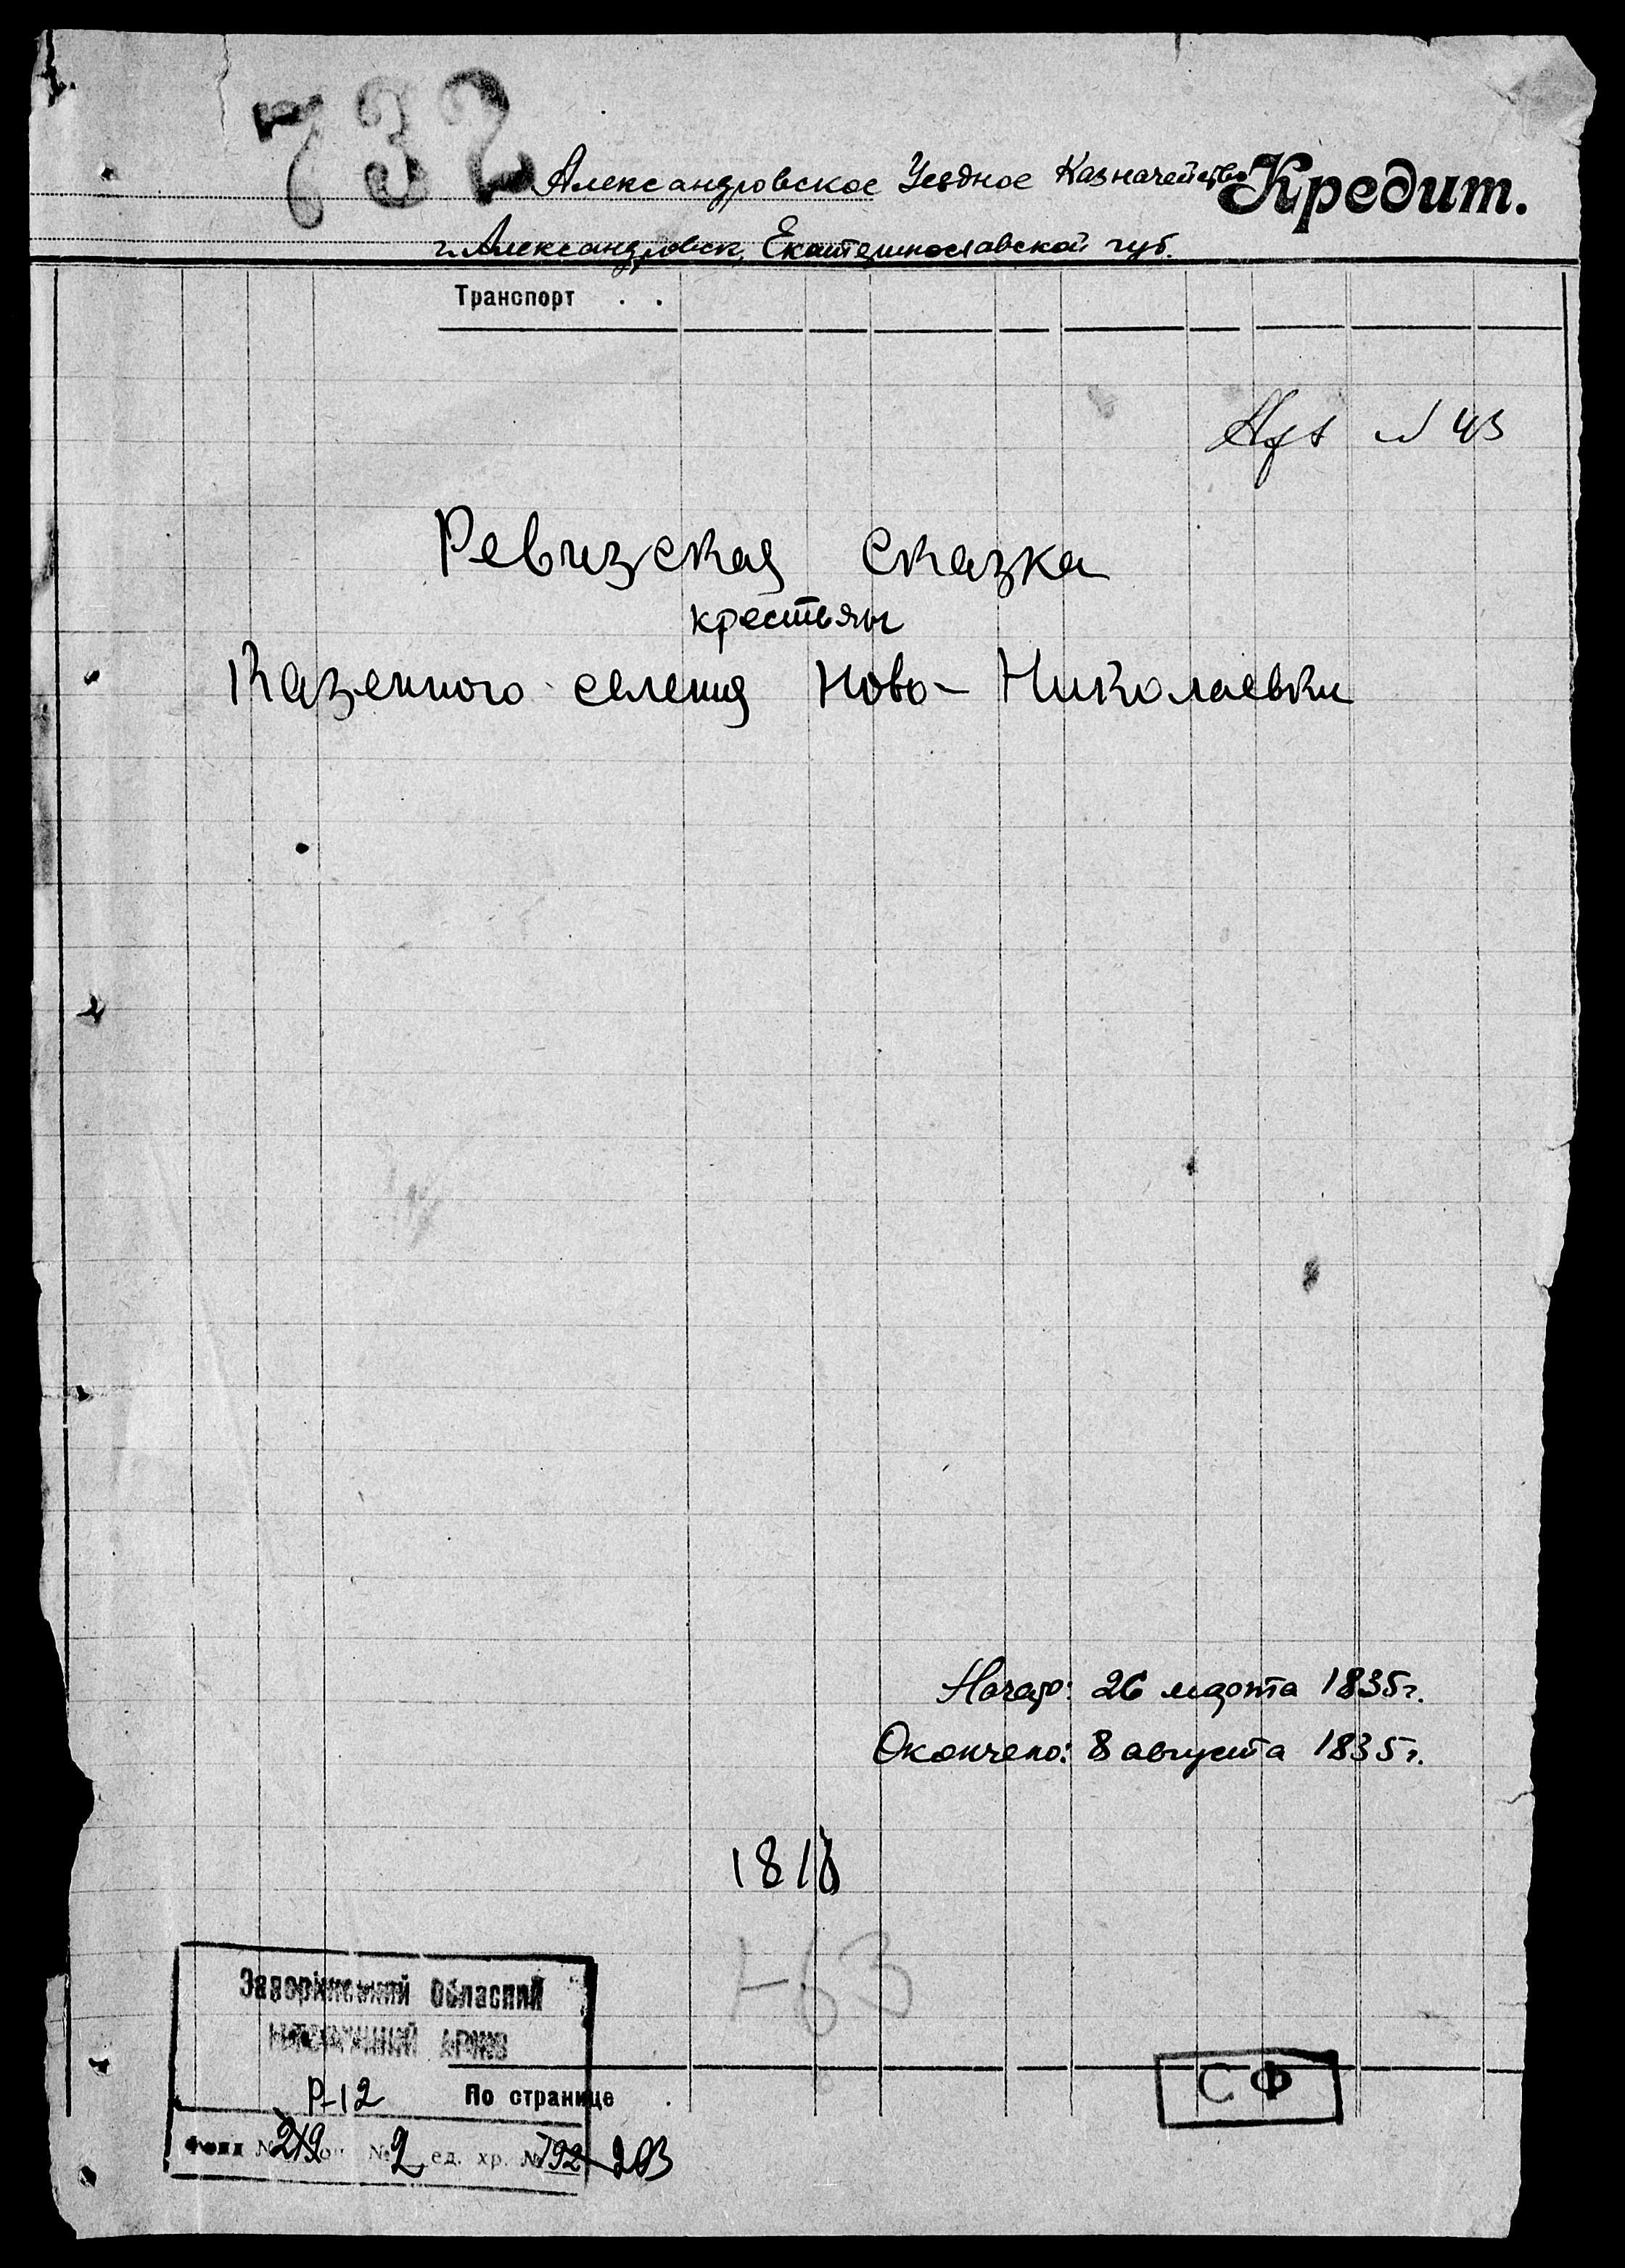 732
Александровское Уездное Казначейство Кредит.
г. Александровск, Екатеринославской губ.
Транспорт . .
№ 43
Ревизская сказка
крестьян
Казенного селения Ново-Николаевки
Начато: 26 марта 1835г.
Окончено: 8 августа 1835г.
1818
Обласний
Р-12 По странице .
СФ
Фонд № оп. № 2 ед. хр. № 792